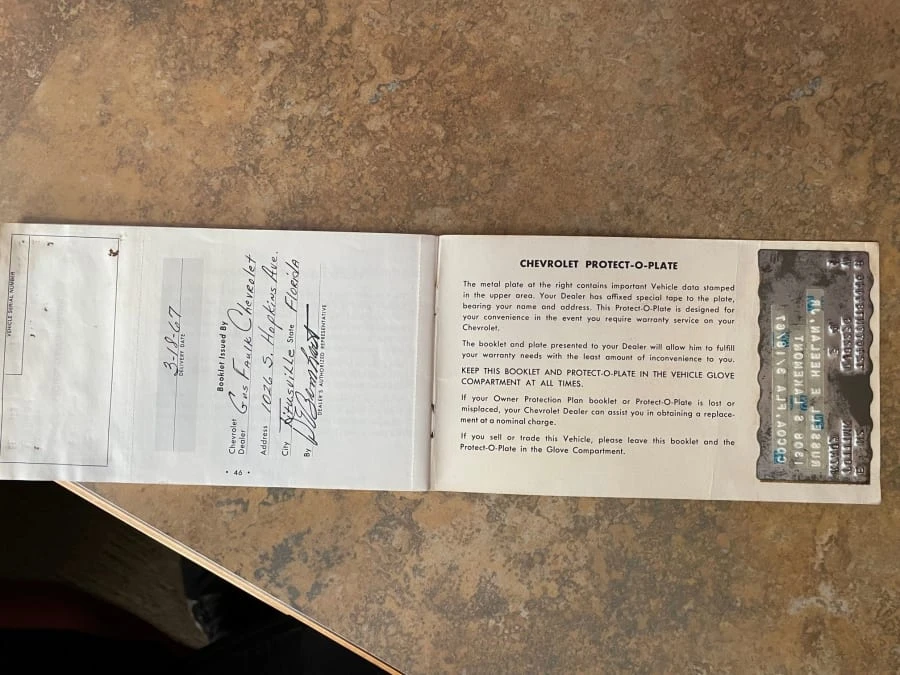 VEHICLE SERIAL NUMBER
3-18-67
DELIVERY DATE
Booklet Issued By
Chevrolet
Dealer Gus Faulk Chevrolet
Address 1026 S. Hopkins Ave.
City Titusville State Florida
By
DEALER'S AUTHORIZED REPRESENTATIVE
• 46 •
CHEVROLET PROTECT-O-PLATE
The metal plate at the right contains important Vehicle data stamped
in the upper area. Your Dealer has affixed special tape to the plate,
bearing your name and address. This Protect-O-Plate is designed for
your convenience in the event you require warranty service on your
Chevrolet.
The booklet and plate presented to your Dealer will allow him to fulfill
your warranty needs with the least amount of inconvenience to you.
KEEP THIS BOOKLET AND PROTECT-O-PLATE IN THE VEHICLE GLOVE
COMPARTMENT AT ALL TIMES.
If your Owner Protection Plan booklet or Protect-O-Plate is lost or
misplaced, your Chevrolet Dealer can assist you in obtaining a replace-
ment at a nominal charge.
If you sell or trade this Vehicle, please leave this booklet and the
Protect-O-Plate in the Glove Compartment.
RUSSELL E HEELAN JR
1306 S LAKEMONT
COCOA, FLA 3/18/67